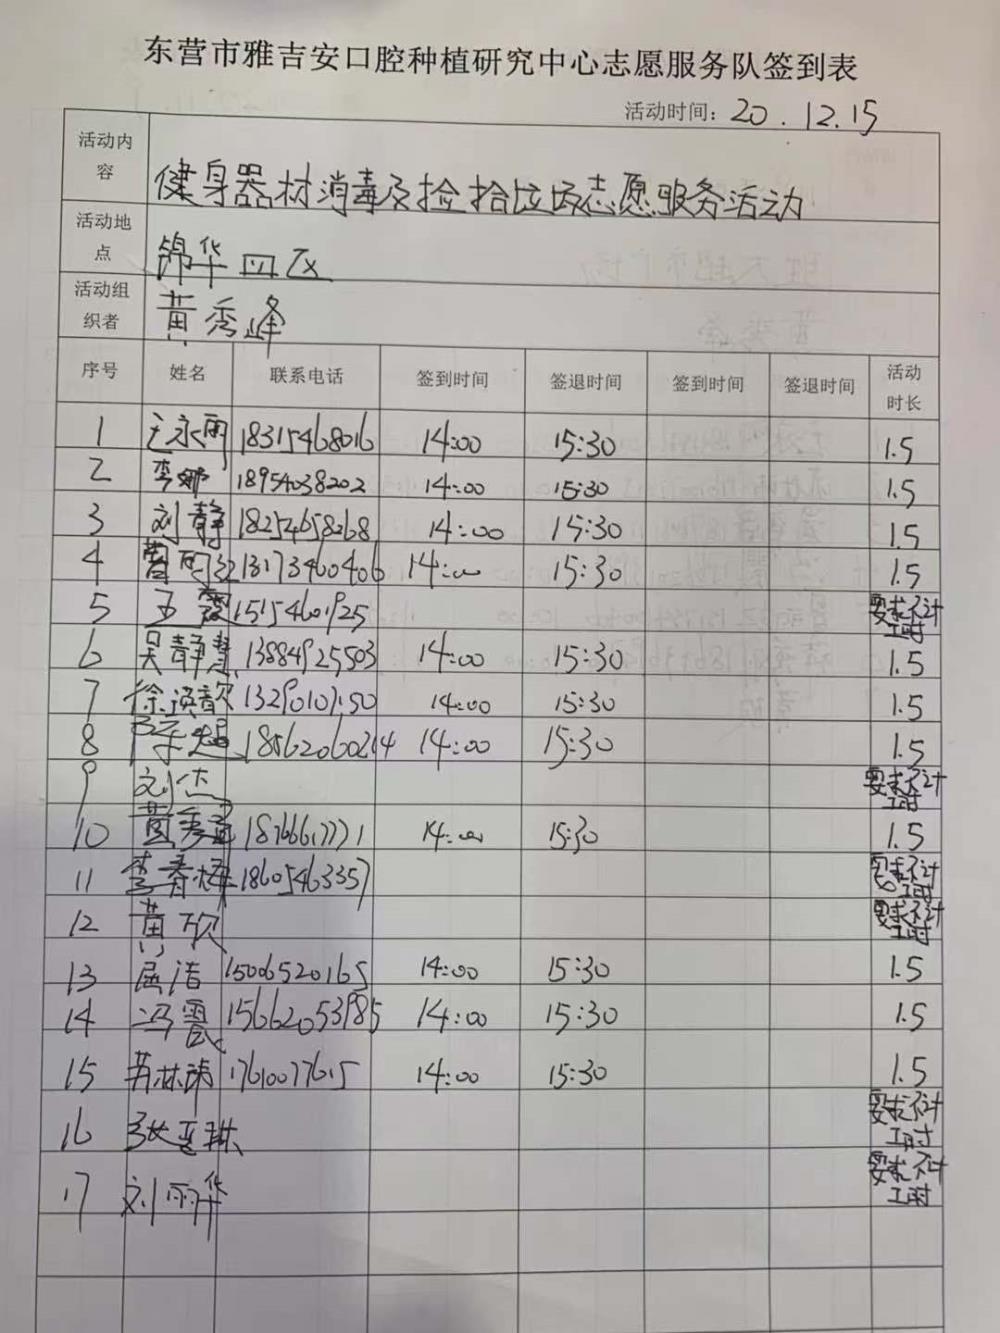 东营市雅吉安口腔种植研究中心志愿服务队签到表
活动时间：20.12.15
活动内容 健身器材消毒及捡拾垃圾志愿服务活动
活动地点 锦华四区
活动组织者 黄秀峰
序号 姓名 联系电话 签到时间 签退时间 签到时间 签退时间 活动时长
1 王永雨 18315468016 14:00 15:30 1.5
2 李娜 18954038202 14:00 15:30 1.5
3 刘静 18254658268 14:00 15:30 1.5
4 13173460406 14:00 15:30 1.5
5 王霞 15154601925 要求不计工时
6 吴静慧 13884925503 14:00 15:30 1.5
7 14:00 15:30 1.5
8 陈超 18562060214 14:00 15:30 1.5
9 刘杰 要求不计工时
10 14:00 15:30 1.5
11 李春梅 18605463357 要求不计工时
12 黄欣 要求不计工时
13 屈洁 15006520165 14:00 15:30 1.5
14 冯震 15662053985 14:00 15:30 1.5
15 17610077615 14:00 15:30 1.5
16 要求不计工时
17 刘雨华 要求不计工时